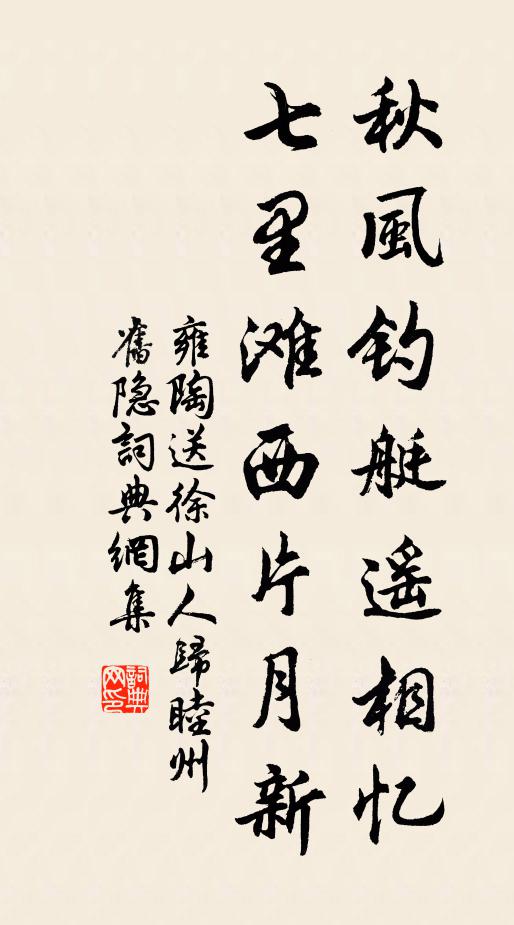 秋風钓艇遥相忆
七里滩西片月新
雍陶送徐山人歸睦州
舊隐詞典網集
詞典
网印